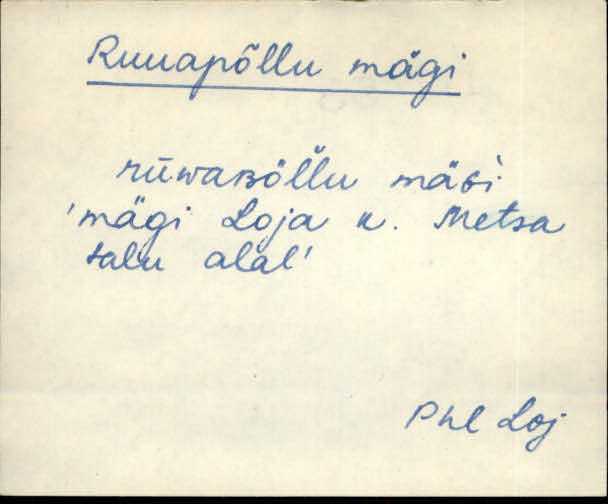 Ruuapõllu mägi
rūwaʙöl̆lu mäɢi
'mägi Loja k. Metsa
talu alal'
Phl Loj